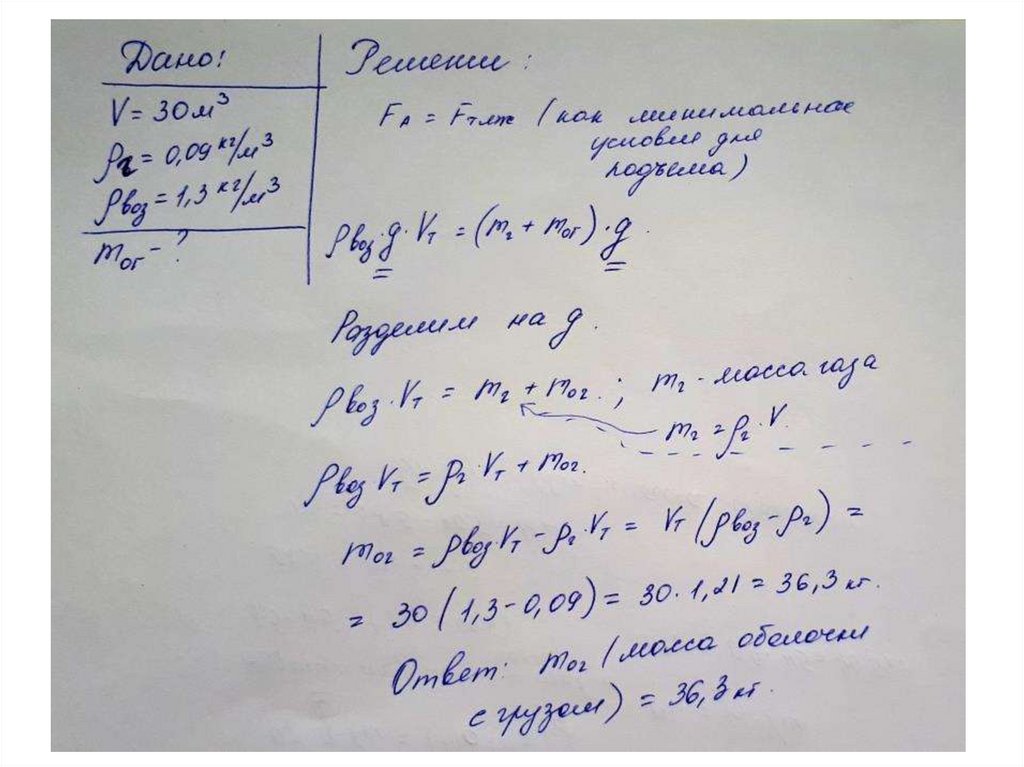 Дано:
V = 30 м³
ρг = 0,09 кг/м³
ρвоз = 1,3 кг/м³
mог - ?
Решение:
FА = Fтяж (как минимальное
условие для
подъема)
ρвоз·g·Vт = (mг + mог)·g.
Разделим на g.
ρвоз·Vт = mг + mог.; mг - масса газа
mг = ρг·V.
ρвоз Vт = ρг·Vт + mог.
mог = ρвоз·Vт - ρг·Vт = Vт (ρвоз - ρг) =
= 30 (1,3 - 0,09) = 30·1,21 = 36,3 кг.
Ответ: mог (масса оболочки
с грузом) = 36,3 кг.